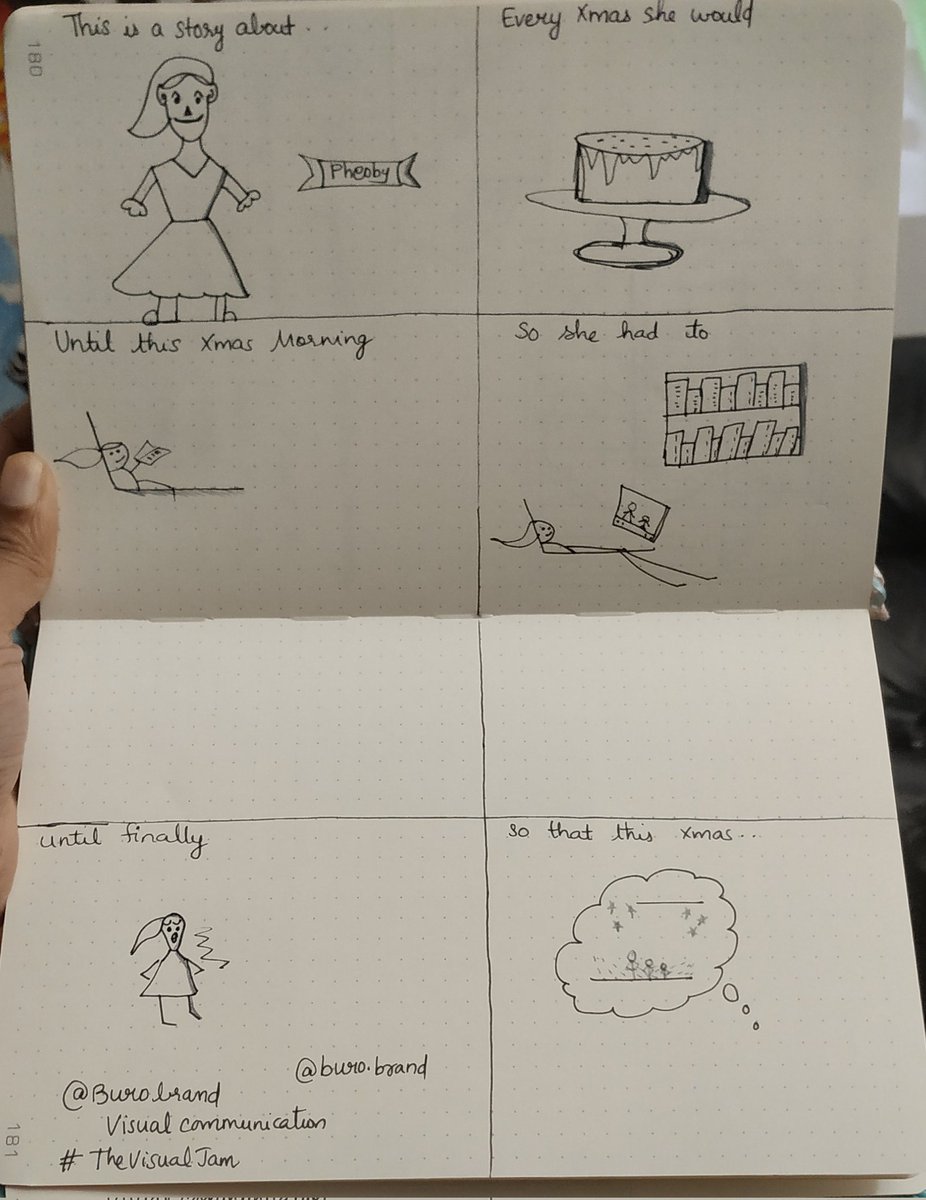 180
This is a story about...
Pheoby
Every Xmas she would
Until this Xmas Morning
So she had to
until finally
so that this xmas...
@buro.brand
@Buro.brand
Visual communication
# TheVisualJam
181